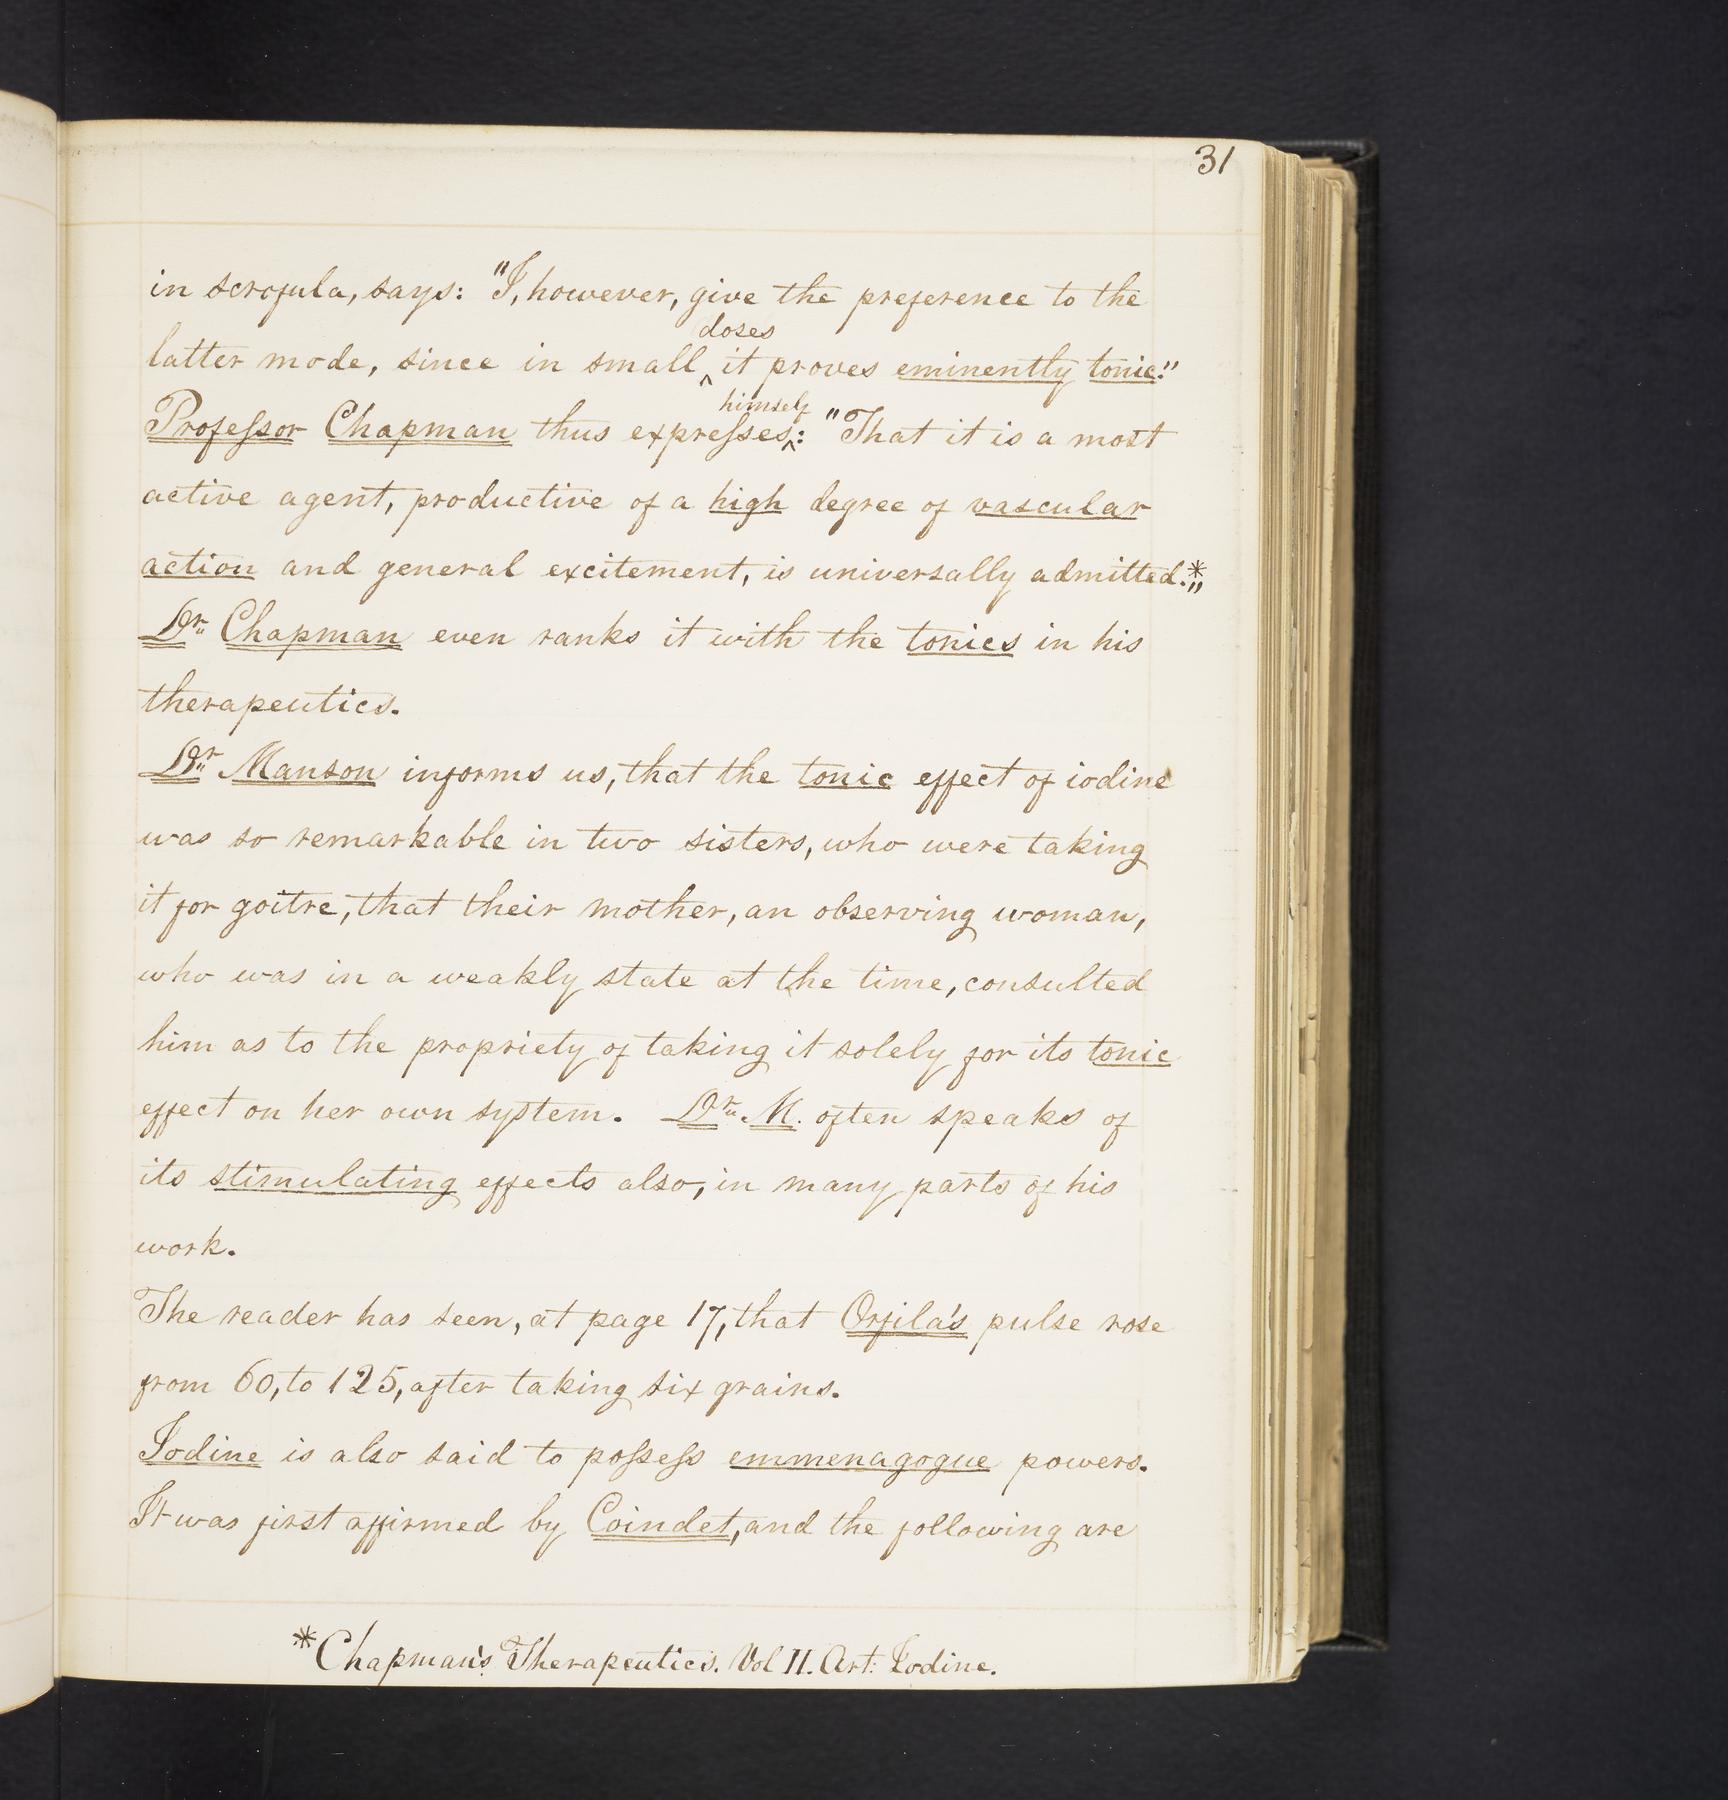 31
in scrofula, says: "I, however, give the preference to the
doses
latter mode, since in small ‸ it proves eminently tonic."
himself
Professor Chapman thus expresses‸: "That it is a most
active agent, productive of a high degree of vascular
action and general excitement, is universally admitted.*"
Dr. Chapman even ranks it with the tonics in his
therapeutics.
Dr. Manson informs us, that the tonic effect of iodine
was so remarkable in two sisters, who were taking
it for goitre, that their mother, an observing woman,
who was in a weakly state at the time, consulted
him as to the propriety of taking it solely for its tonic
effect on her own system. Dr. M. often speaks of
its stimulating effects also, in many parts of his
work.
The reader has seen, at page 17, that Orfila's pulse rose
from 60, to 125, after taking six grains.
Iodine is also said to possess emmenagogue powers.
It was first affirmed by Coindet, and the following are
*Chapman's Therapeutics. Vol II. Art: Iodine.